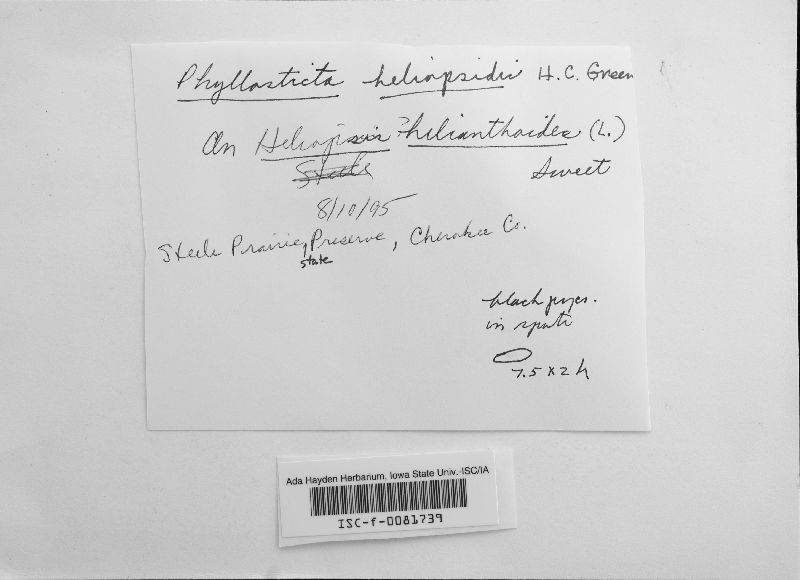 Phyllosticta heliopsidis H.C. Green
On Heliopsis ? helianthoides (L.)
Steele Sweet
8/10/95
Steele Prairie, Preserve, Cherokee Co.
state
black pycs.
in spots
7.5 x 2 μ
Ada Hayden Herbarium, Iowa State Univ.-ISC/IA
ISC-f-0081739